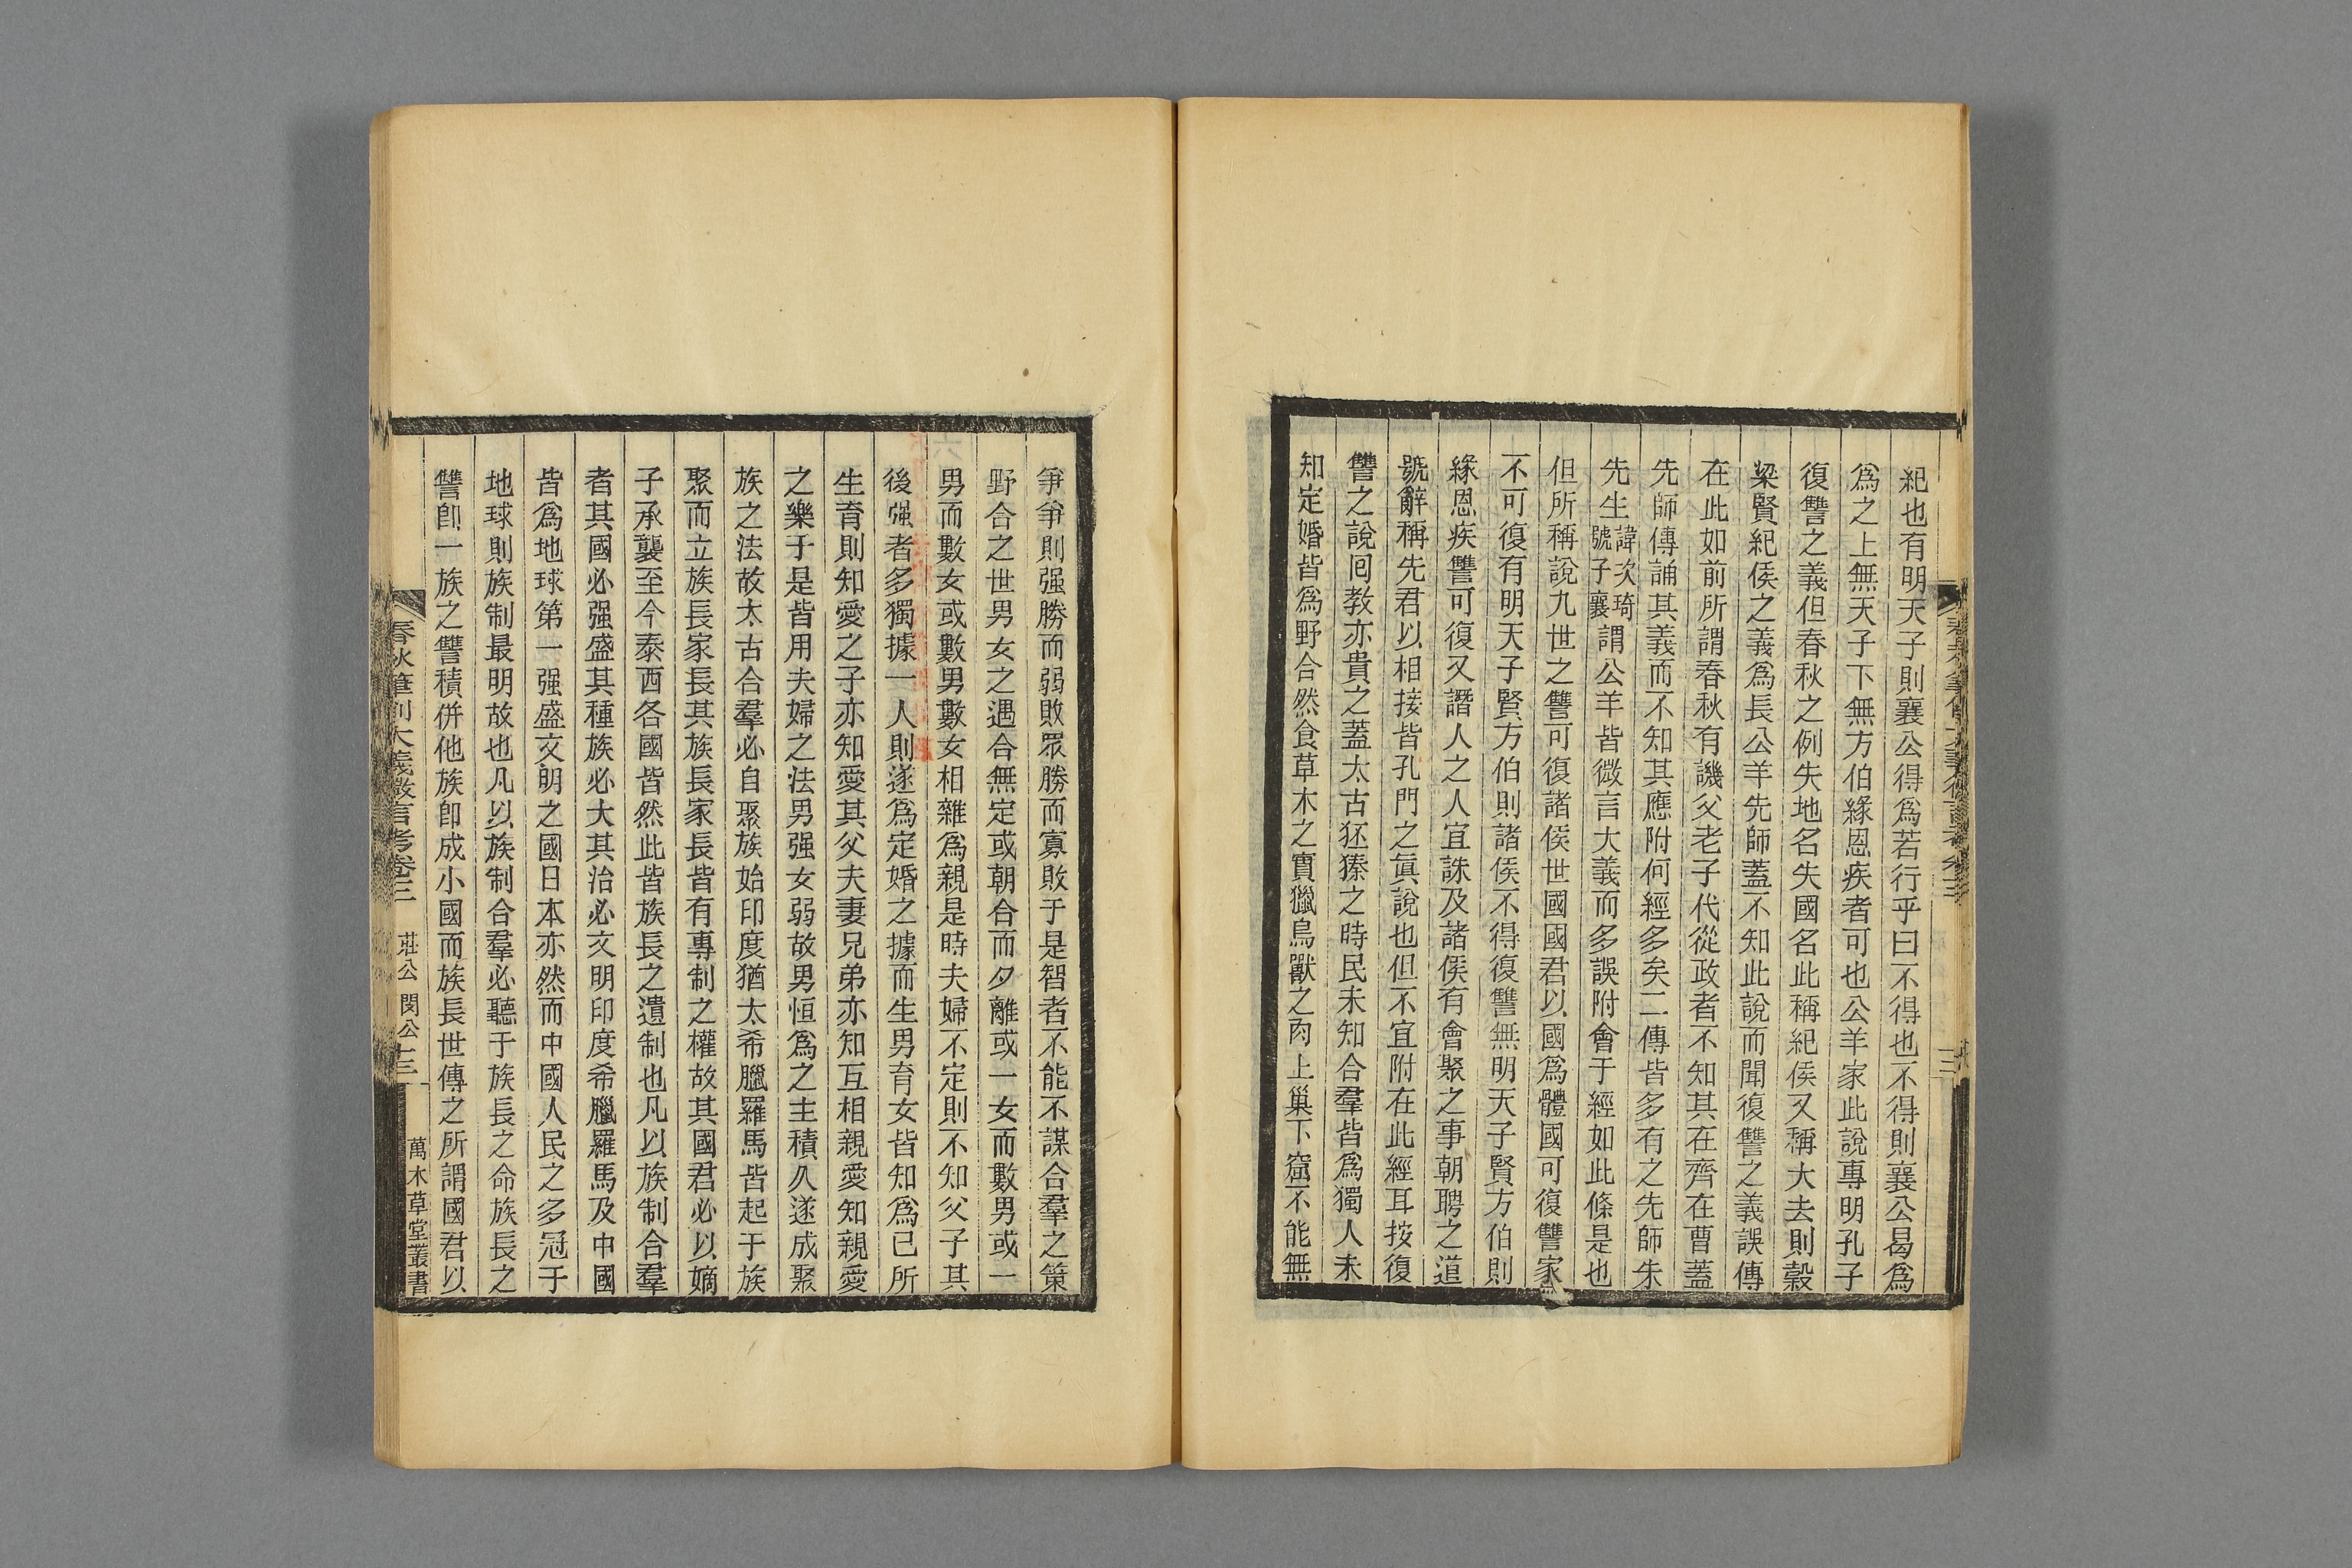 紀也有明天子則襄公得爲若行乎曰不得也不得則襄公曷爲
爲之上無天子下無方伯緣恩疾者可也公羊家此說專明孔子
復讐之義但春秋之例失地名失國名此稱紀侯又稱大去則穀
梁賢紀侯之義爲長公羊先師蓋不知此說而聞復讐之義誤傳
在此如前所謂春秋有譏父老子代從政者不知其在齊在曹蓋
先師傳誦其義而不知其應附何經多矣二傳皆多有之先師朱
先生諱次琦號子襄謂公羊皆微言大義而多誤附會于經如此條是也
但所稱說九世之讐可復諸侯世國國君以國爲體國可復讐家
不可復有明天子賢方伯則諸侯不得復讐無明天子賢方伯則
緣恩疾讐可復又譖人之人宜誅及諸侯有會聚之事朝聘之道
號辭稱先君以相接皆孔門之眞說也但不宜附在此經耳按復
讐之說囘敎亦貴之蓋太古狉獉之時民未知合羣皆爲獨人未
知定婚皆爲野合然食草木之實獵鳥獸之肉上巢下窟不能無
爭爭則强勝而弱敗眾勝而寡敗于是智者不能不謀合羣之策
野合之世男女之遇合無定或朝合而夕離或一女而數男或一
男而數女或數男數女相雜爲親是時夫婦不定則不知父子其
後强者多獨據一人則遂爲定婚之據而生男育女皆知爲己所
生育則知愛之子亦知愛其父夫妻兄弟亦知互相親愛知親愛
之樂于是皆用夫婦之法男强女弱故男恒爲之主積久遂成聚
族之法故太古合羣必自聚族始印度猶太希臘羅馬皆起于族
聚而立族長家長其族長家長皆有專制之權故其國君必以嫡
子承襲至今泰西各國皆然此皆族長之遺制也凡以族制合羣
者其國必强盛其種族必大其治必文明印度希臘羅馬及中國
皆爲地球第一强盛文明之國日本亦然而中國人民之多冠于
地球則族制最明故也凡以族制合羣必聽于族長之命族長之
讐卽一族之讐積併他族卽成小國而族長世傳之所謂國君以
春秋筆削大義微言考卷三 莊公 閔公 十三 萬木草堂叢書